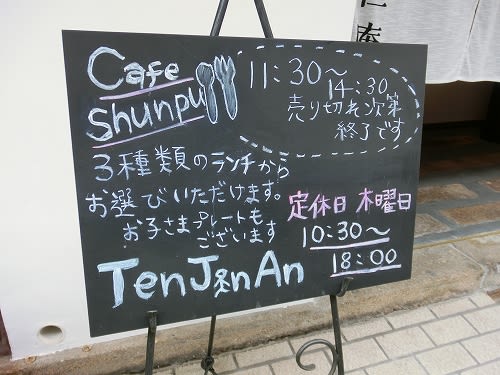 Cafe
Shunpu
11:30～
14:30
売り切れ次第
終了です
3種類のランチから
お選びいただけます。
お子さまプレートも
ございます
定休日 木曜日
10:30～
18:00
TenJinAn
仁庵